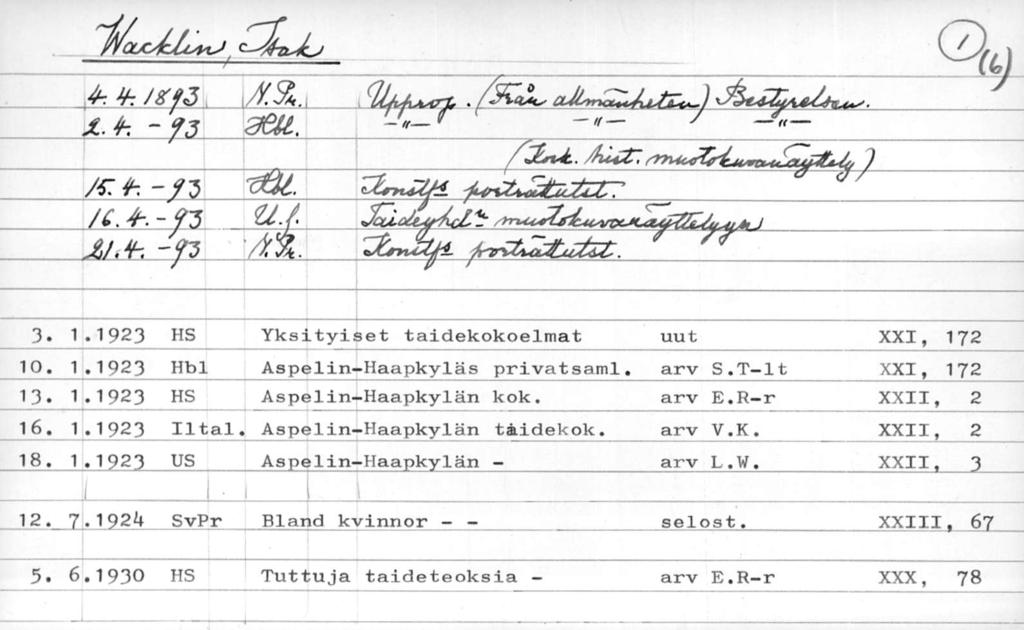 Wacklin, Isak 1 (6)
4. 4. 1893 N. Pr. Upprop. (Från allmänheten) Bestyrelsen.
2. 4. - 93 Hbl. -"- -"- -"-
( hist. muotokuvanäyttely)
15. 4. - 93 Hbl. Konstfs porträttutst.
16. 4. - 93 U. S. Taideyhdn muotokuvanäyttelyyn
21. 4. - 93 N. Pr. Konstfs porträttutst.
3. 1.1923 HS Yksityiset taidekokoelmat uut XXI, 172
10. 1.1923 Hbl Aspelin-Haapkyläs privatsaml. arv S.T-lt XXI, 172
13. 1.1923 HS Aspelin-Haapkylän kok. arv E.R-r XXII, 2
16. 1.1923 Iltal. Aspelin-Haapkylän taidekok. arv V.K. XXII, 2
18. 1.1923 US Aspelin-Haapkylän - arv L.W. XXII, 3
12. 7.1924 SvPr Bland kvinnor - - selost. XXIII, 67
5. 6.1930 HS Tuttuja taideteoksia - arv E.R-r XXX, 78